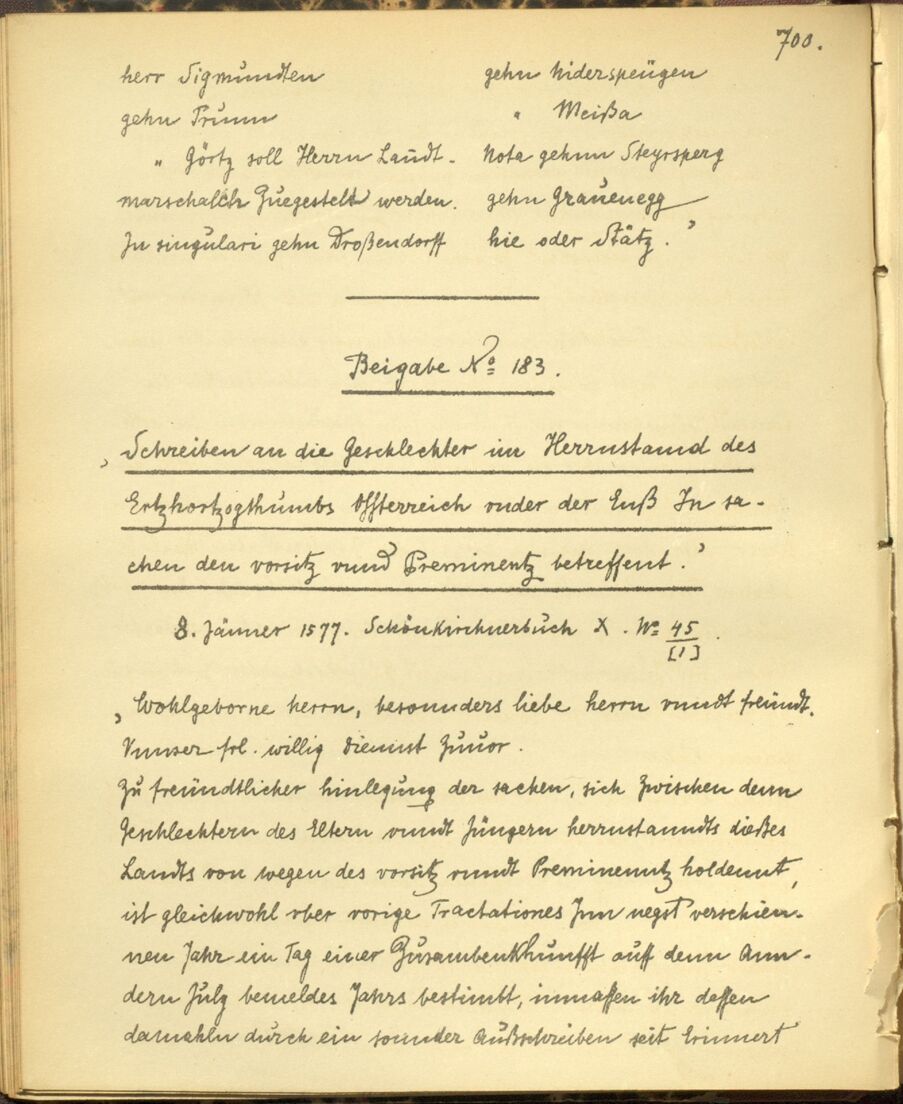 700.
herr Sigmundten
gehn Prunn
" Görtz soll Herrn Landt-
marschalch Zuegestelt werden.
In singulari gehn Droßendorff
gehn Niderspeügen
" Meißa
Nota gehnn Steyrsperg
gehn Grauenegg
hie oder Stätz.'
Beigabe No 183.
'Schreiben an die Geschlechter im Herrnstannd des
Ertzhortzogthumbs Össterreich vnder der Enß In sa-
chen den vorsitz vnnd Preminentz betreffent.'
8. Jänner 1577. Schönkirchnerbuch X. No 45/[1].
'Wohlgeborne herrn, besonnders liebe herrn vnndt freündt.
Vnnser frl. willig diennst Zuuor.
Zu freündtlicher hinlegung der sachen, sich Zwischen denn
Geschlechtern des Eltern vnndt Jüngern herrnstanndts dießes
Landts von wegen des vorsitz vnndt Preminenntz holdennt,
ist gleichwohl vber vorige Tractationes Inn negst verschien-
nen Jahr ein Tag einer Zusambenkhunfft auff denn Ann-
dern July bemeldes Jahrs bestimbt, inmassen ihr dessen
damahln durch ein sonnder Außschreiben seit Erinnert